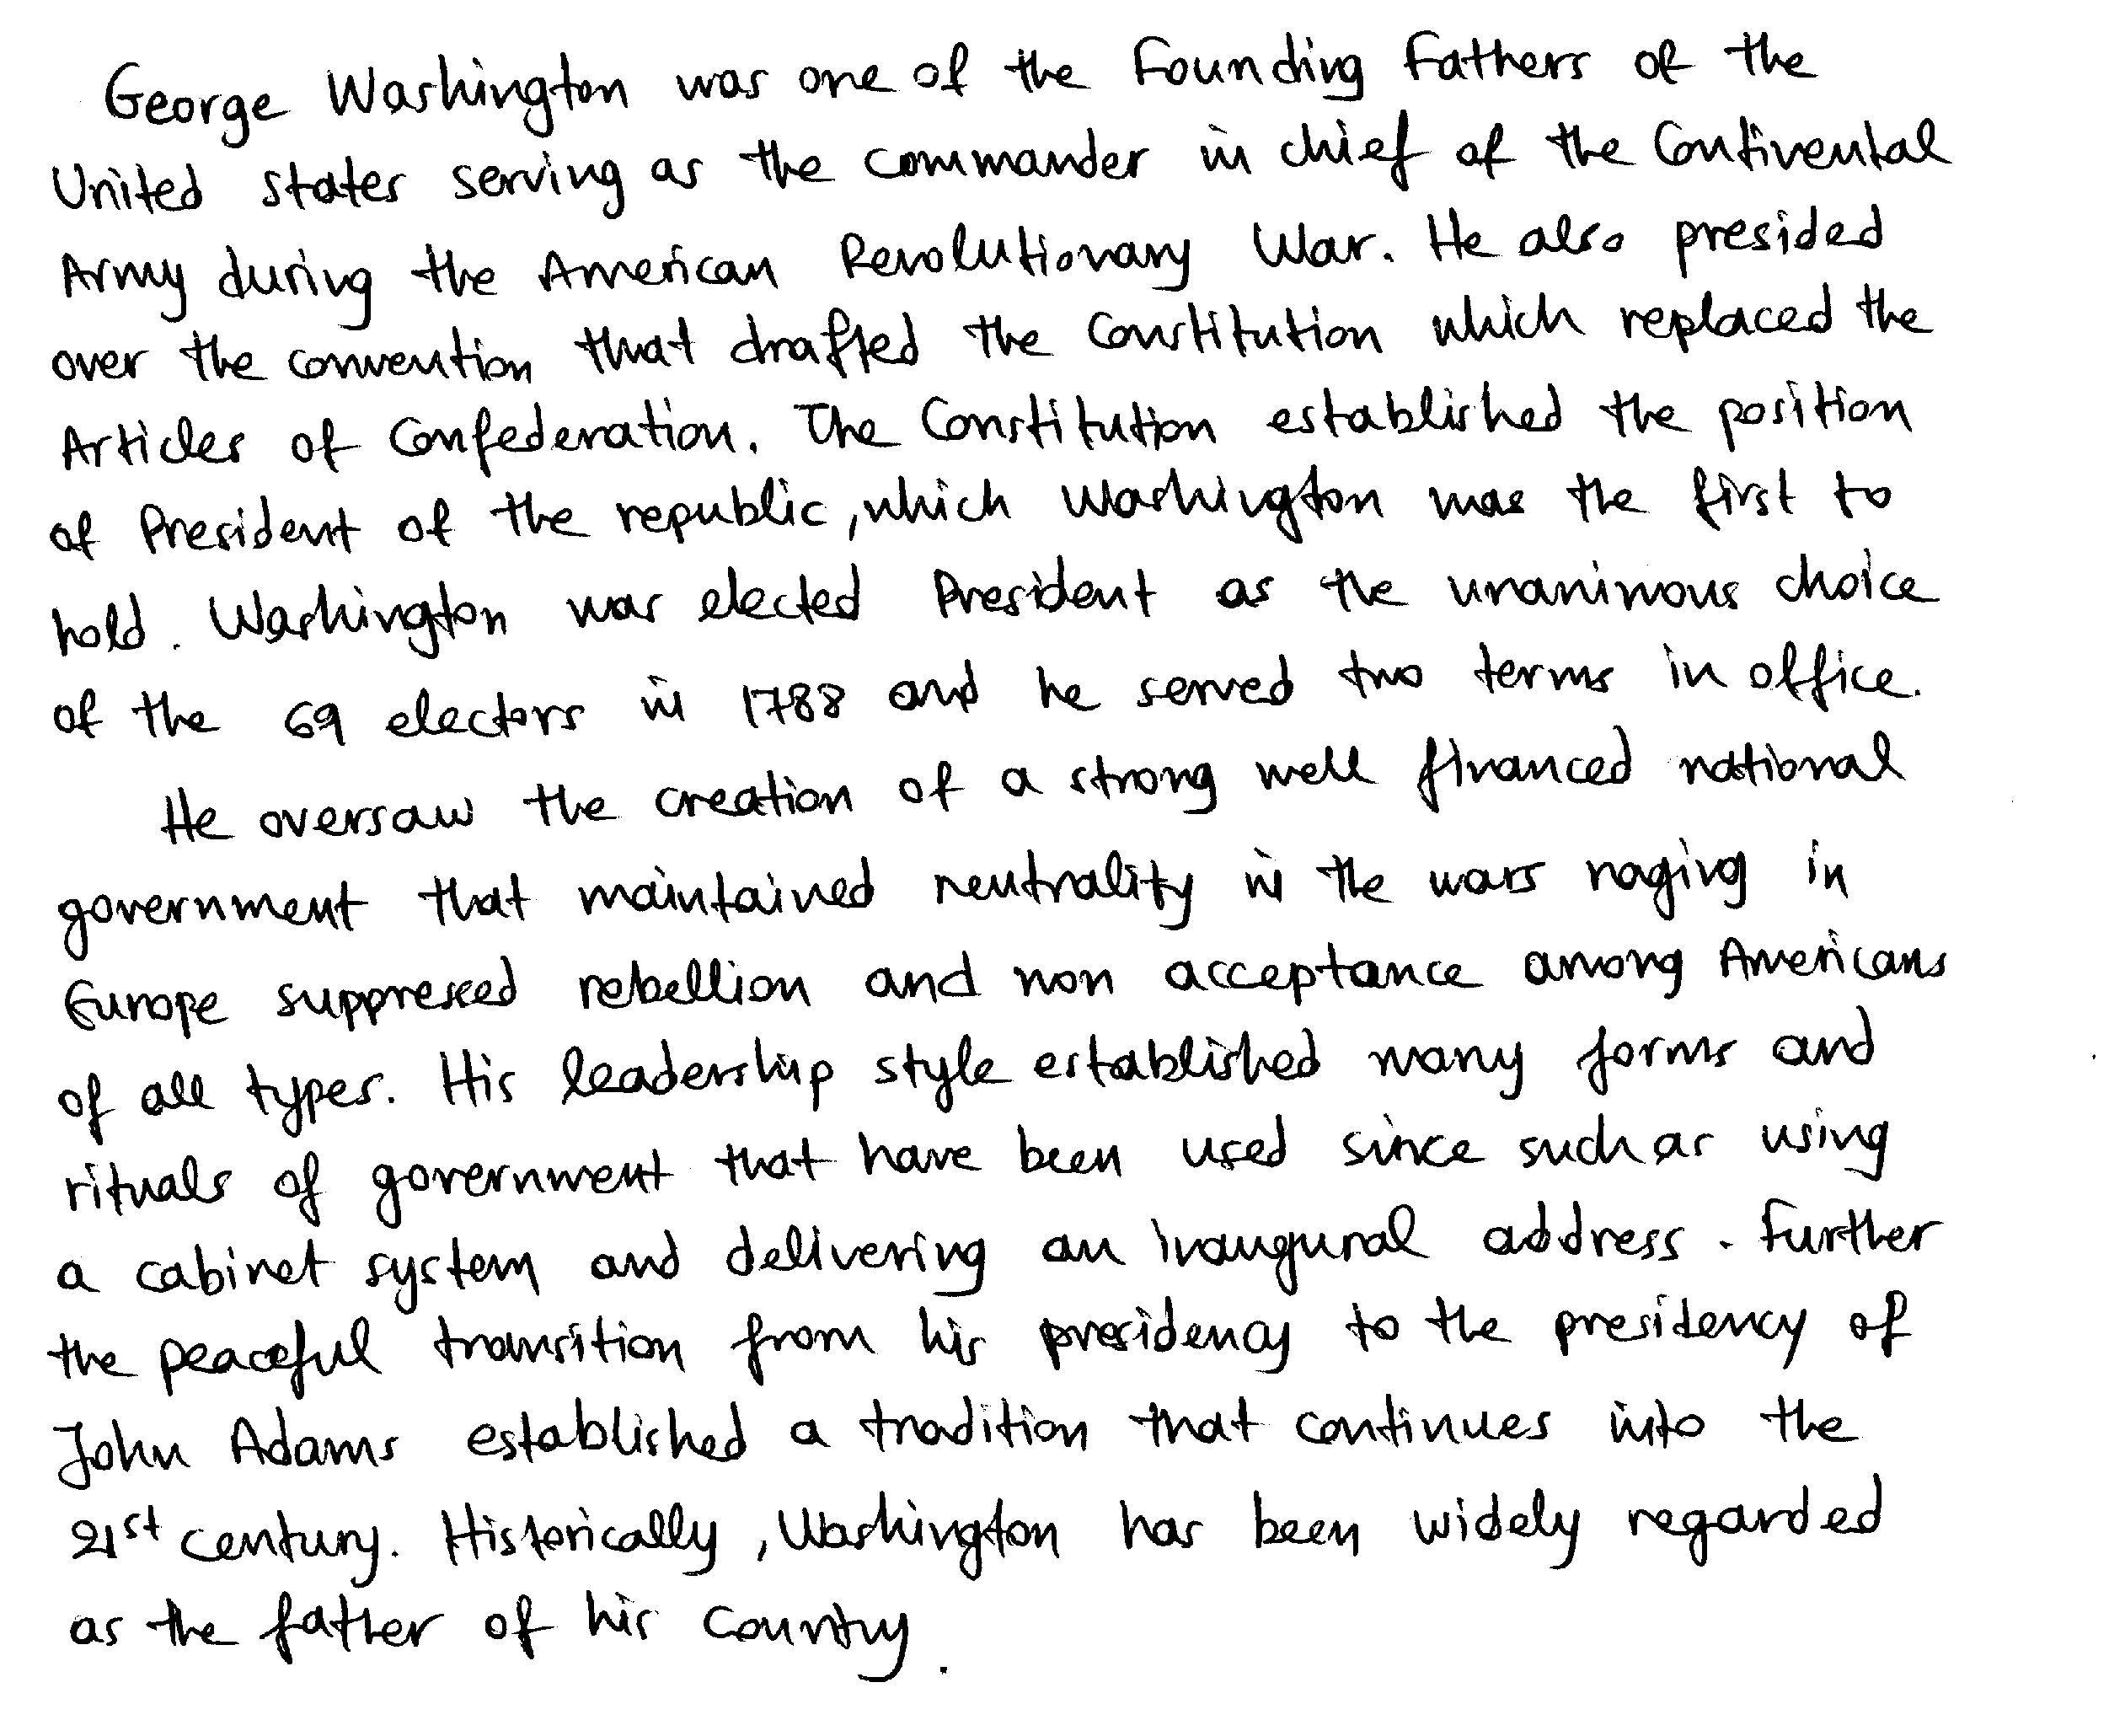 George Washington was one of the Founding Fathers of the
United states serving as the commander in chief of the Continental
Army during the American Revolutionary War. He also presided
over the convention that drafted the Constitution which replaced the
Articles of Confederation. The Constitution established the position
of President of the republic, which Washington was the first to
hold. Washington was elected President as the unanimous choice
of the 69 electors in 1788 and he served two terms in office.
He oversaw the creation of a strong well financed national
government that maintained neutrality in the wars raging in
Europe suppressed rebellion and non acceptance among Americans
of all types. His leadership style established many forms and
rituals of government that have been used since such as using
a cabinet system and delivering an inaugural address. Further
the peaceful transition from his presidency to the presidency of
John Adams established a tradition that continues into the
21st century. Historically, Washington has been widely regarded
as the father of his country.